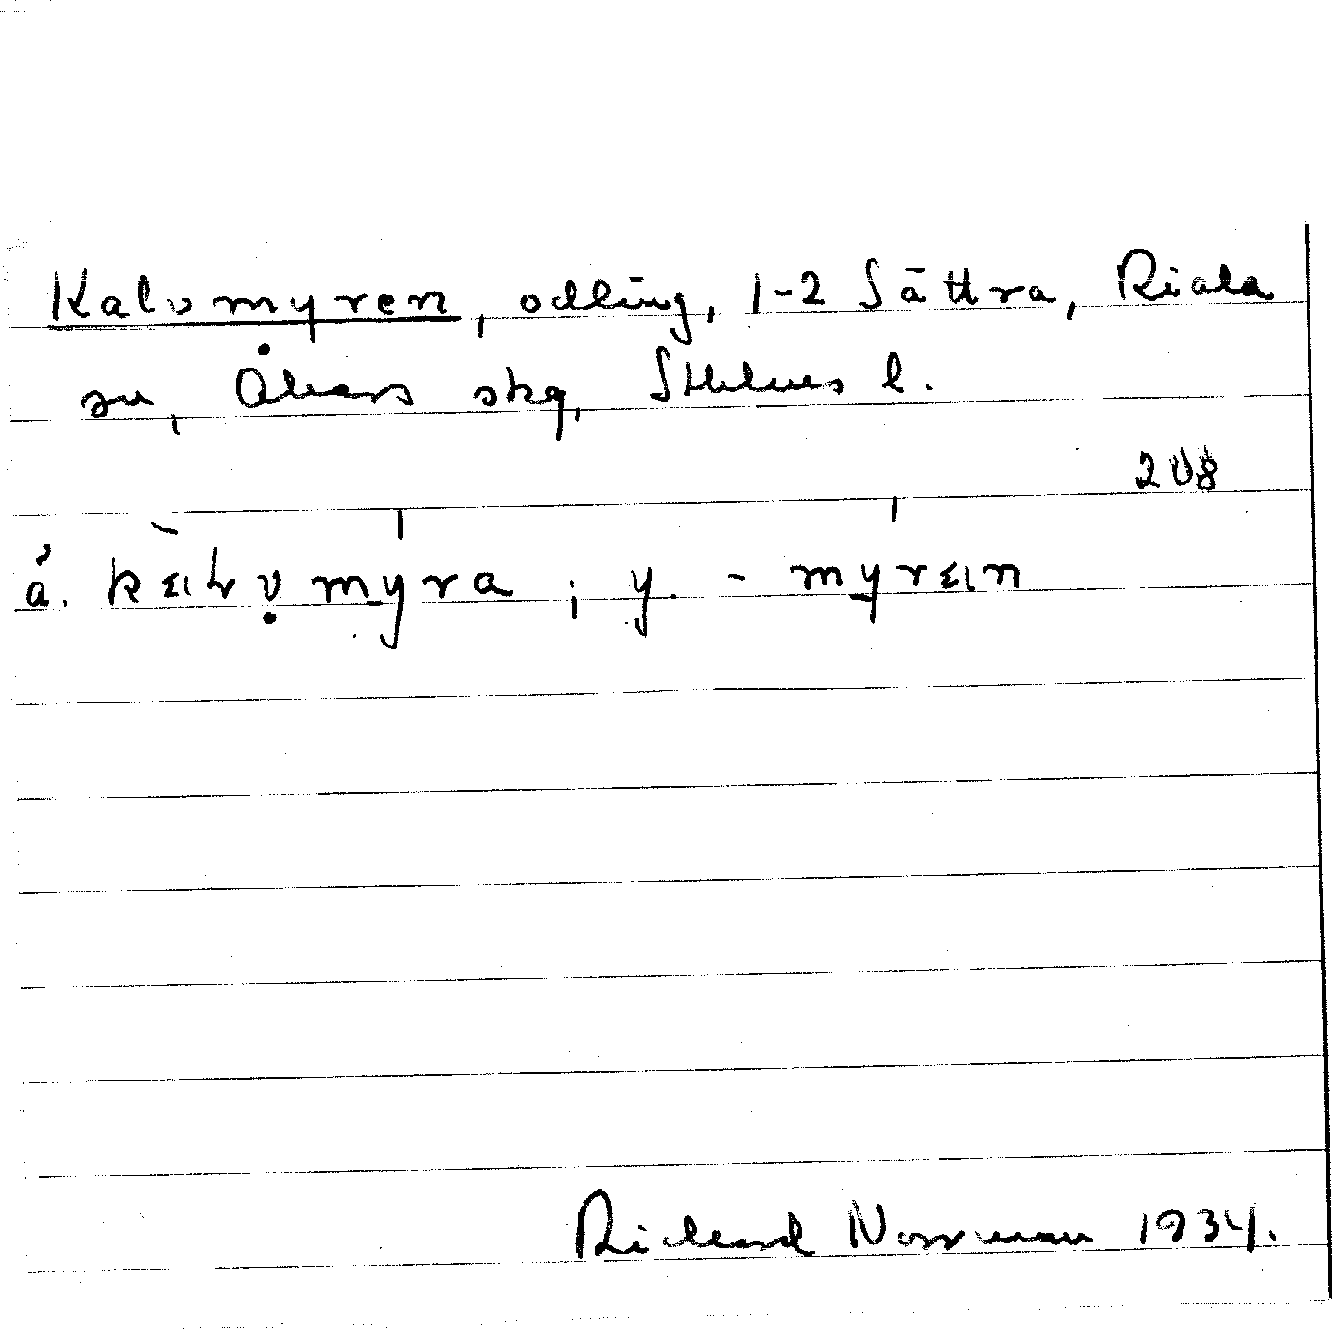 Kalvmyren, odling, 1-2 Sättra, Riala
sn, Åkers skg, Sthlms l.
208
å. myra; y. - myrın
Richard Norrman 1934.